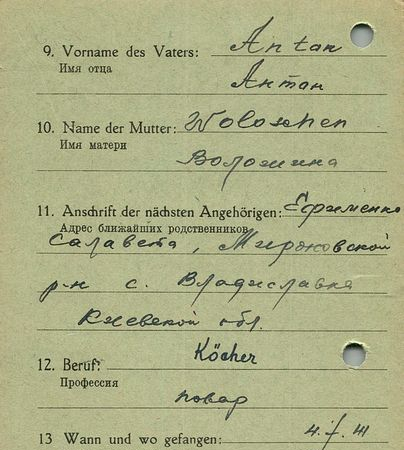 9. Vorname des Vaters: Antan
Имя отца
Антан
10. Name der Mutter: Woloschen
Имя матери
Волошина
11. Anschrift der nächsten Angehörigen: Ефименко
Адрес ближайших родственников
Салавета, Мироновской
р-н с. Владиславка
Киевской обл.
12. Beruf: Köcher
Профессия
повар
13 Wann und wo gefangen: 41